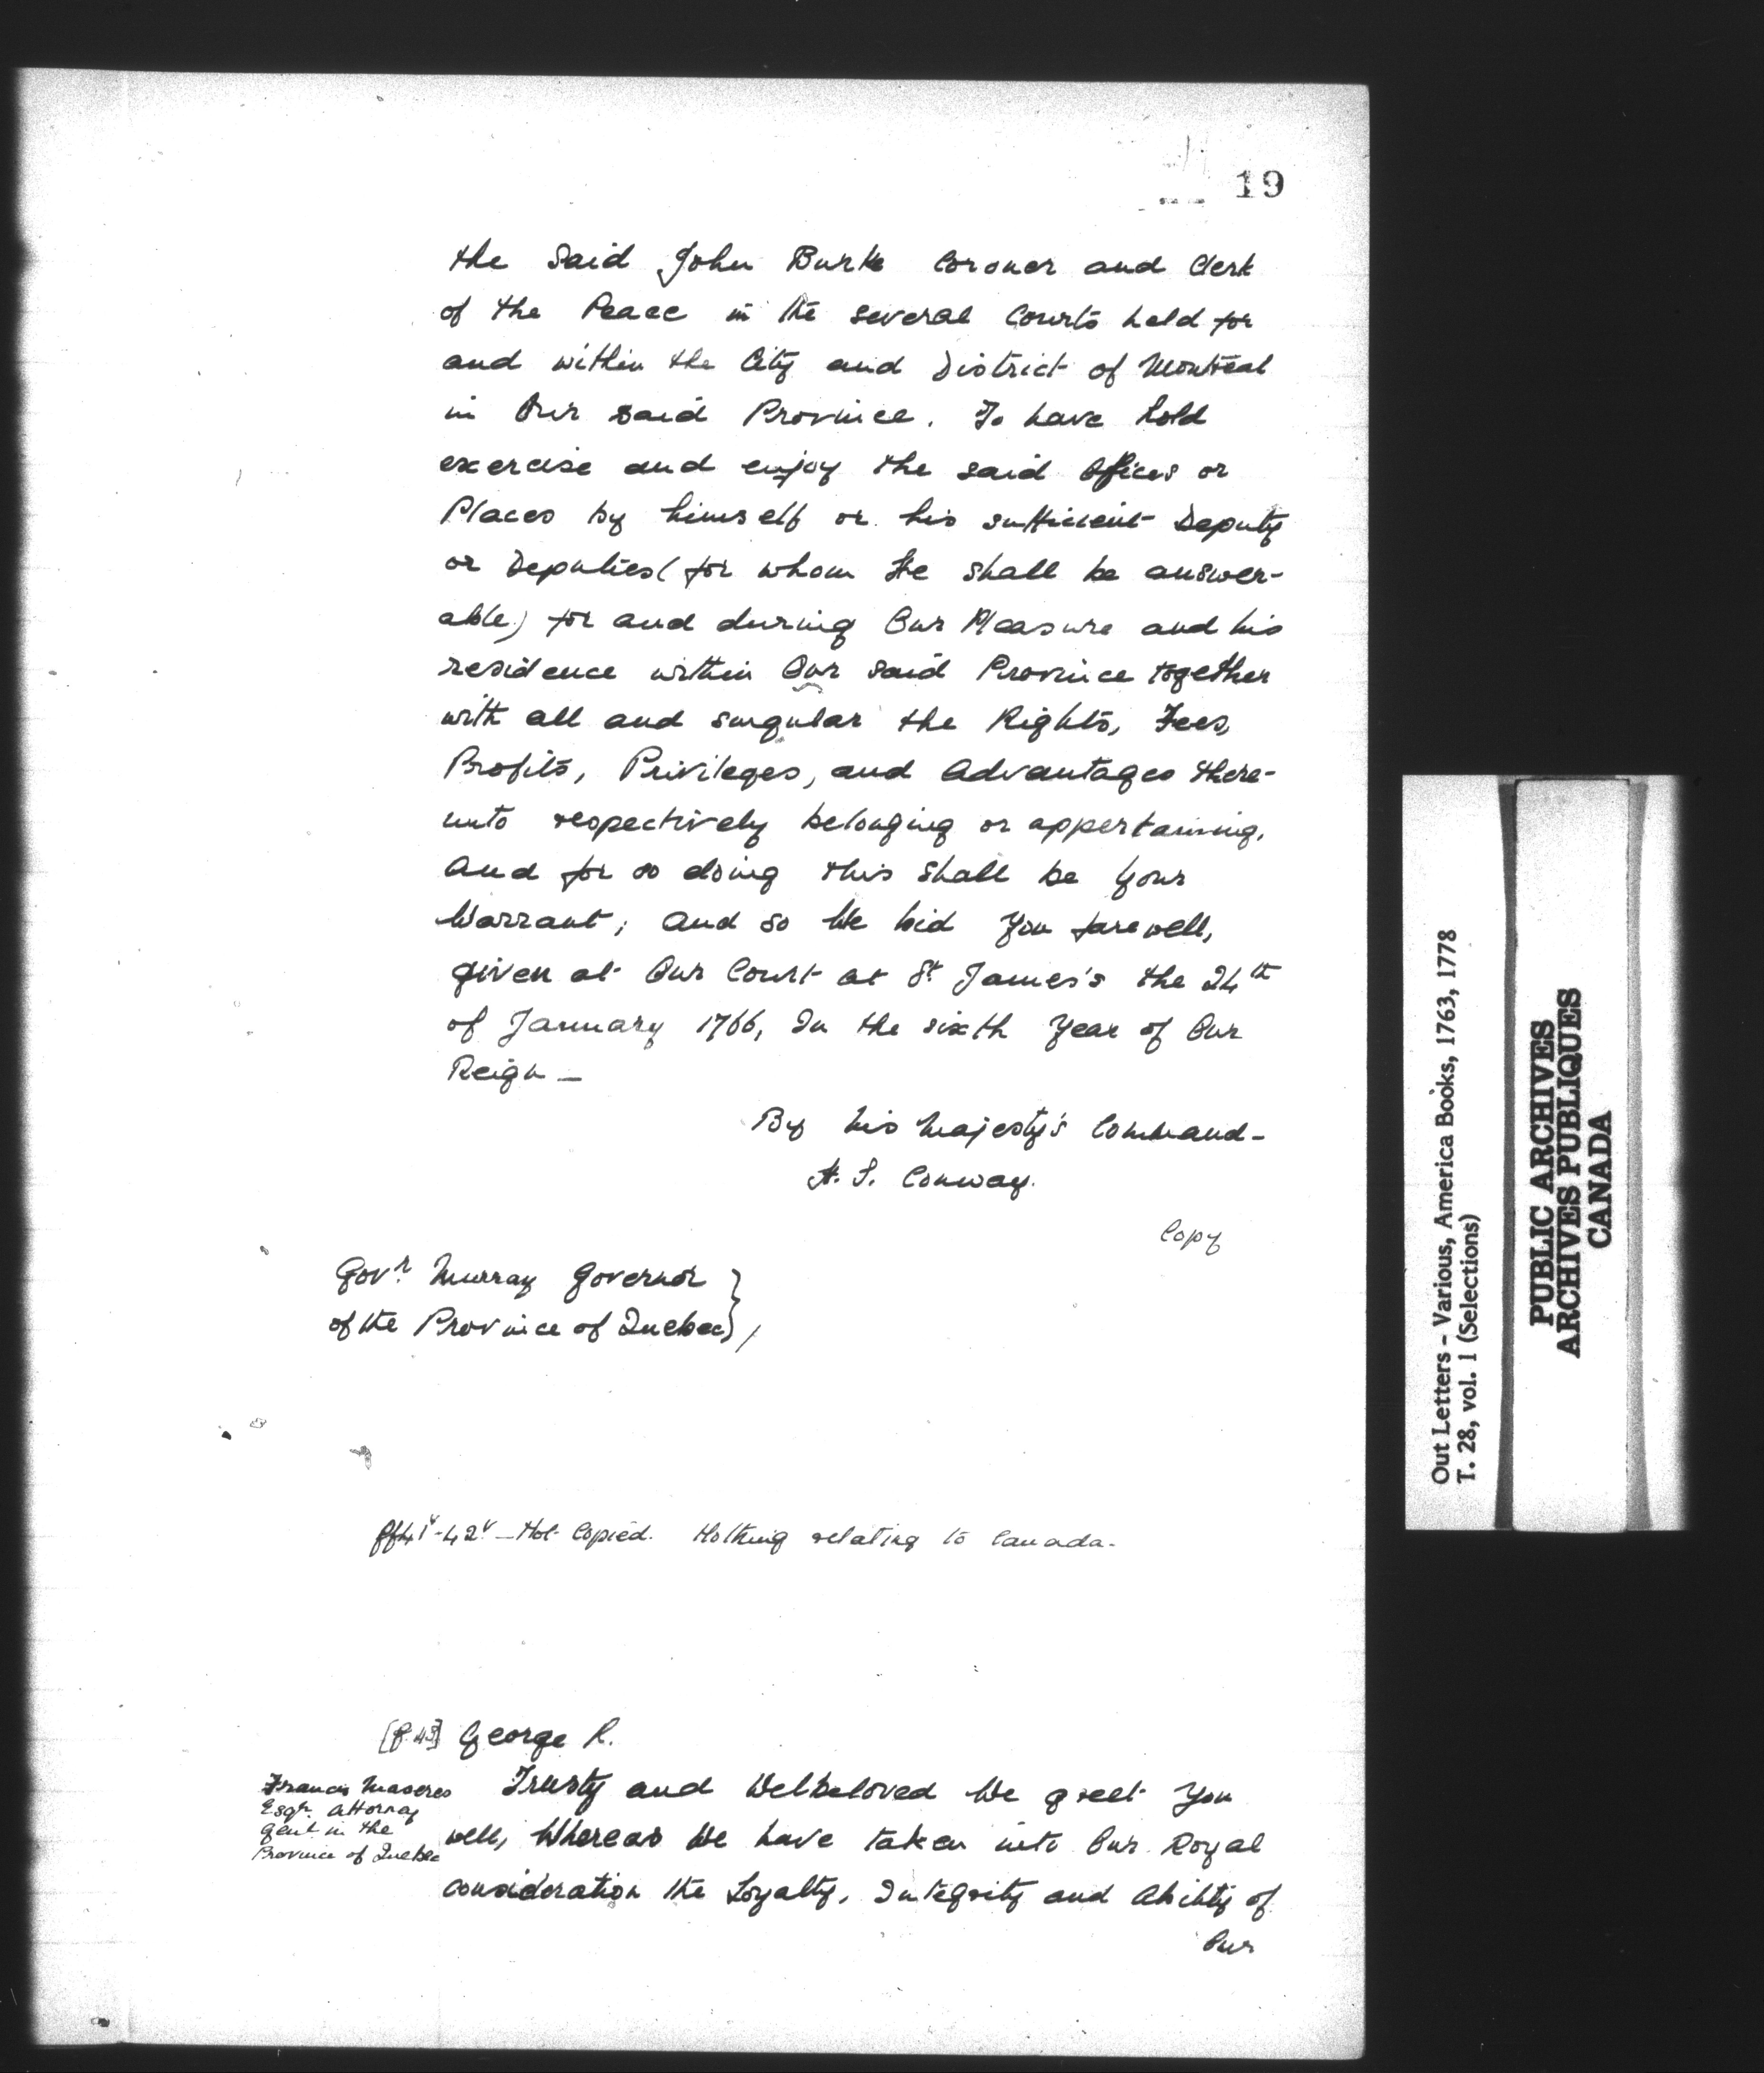 19
the Said John Burke Coroner and Clerk
of the Peace in the several Courts held for
and within the City and District of Montreal
in Our said Province. To have hold
exercise and enjoy the said Offices or
Places by himself or his sufficient Deputy
or Deputies (for whom He shall be answer-
able) for and during Our Pleasure and his
residence within Our said Province together
with all and singular the Rights, Fees,
Profits, Privileges, and Advantages there-
unto respectively belonging or appertaining,
And for so doing this shall be Your
Warrant; and so We bid You farewell,
given at Our Court at St James's the 24th
of January 1766, In the sixth Year of Our
Reign —
By his Majesty's Command-
H. S. Conway.
Copy
Govr. Murray Governor
of the Province of Quebec
ff 41v-42v — Not Copied. Nothing relating to Canada.
[f 43] George R.
Francis Maseres
Esqr. Attorney
Genl in the
Province of Quebec
Trusty and Welbeloved We greet You
well, Whereas We have taken into Our Royal
consideration the Loyalty, Integrity and Ability of
Our
Out Letters - Various, America Books, 1763, 1778
T. 28, vol. 1 (Selections)
PUBLIC ARCHIVES
ARCHIVES PUBLIQUES
CANADA